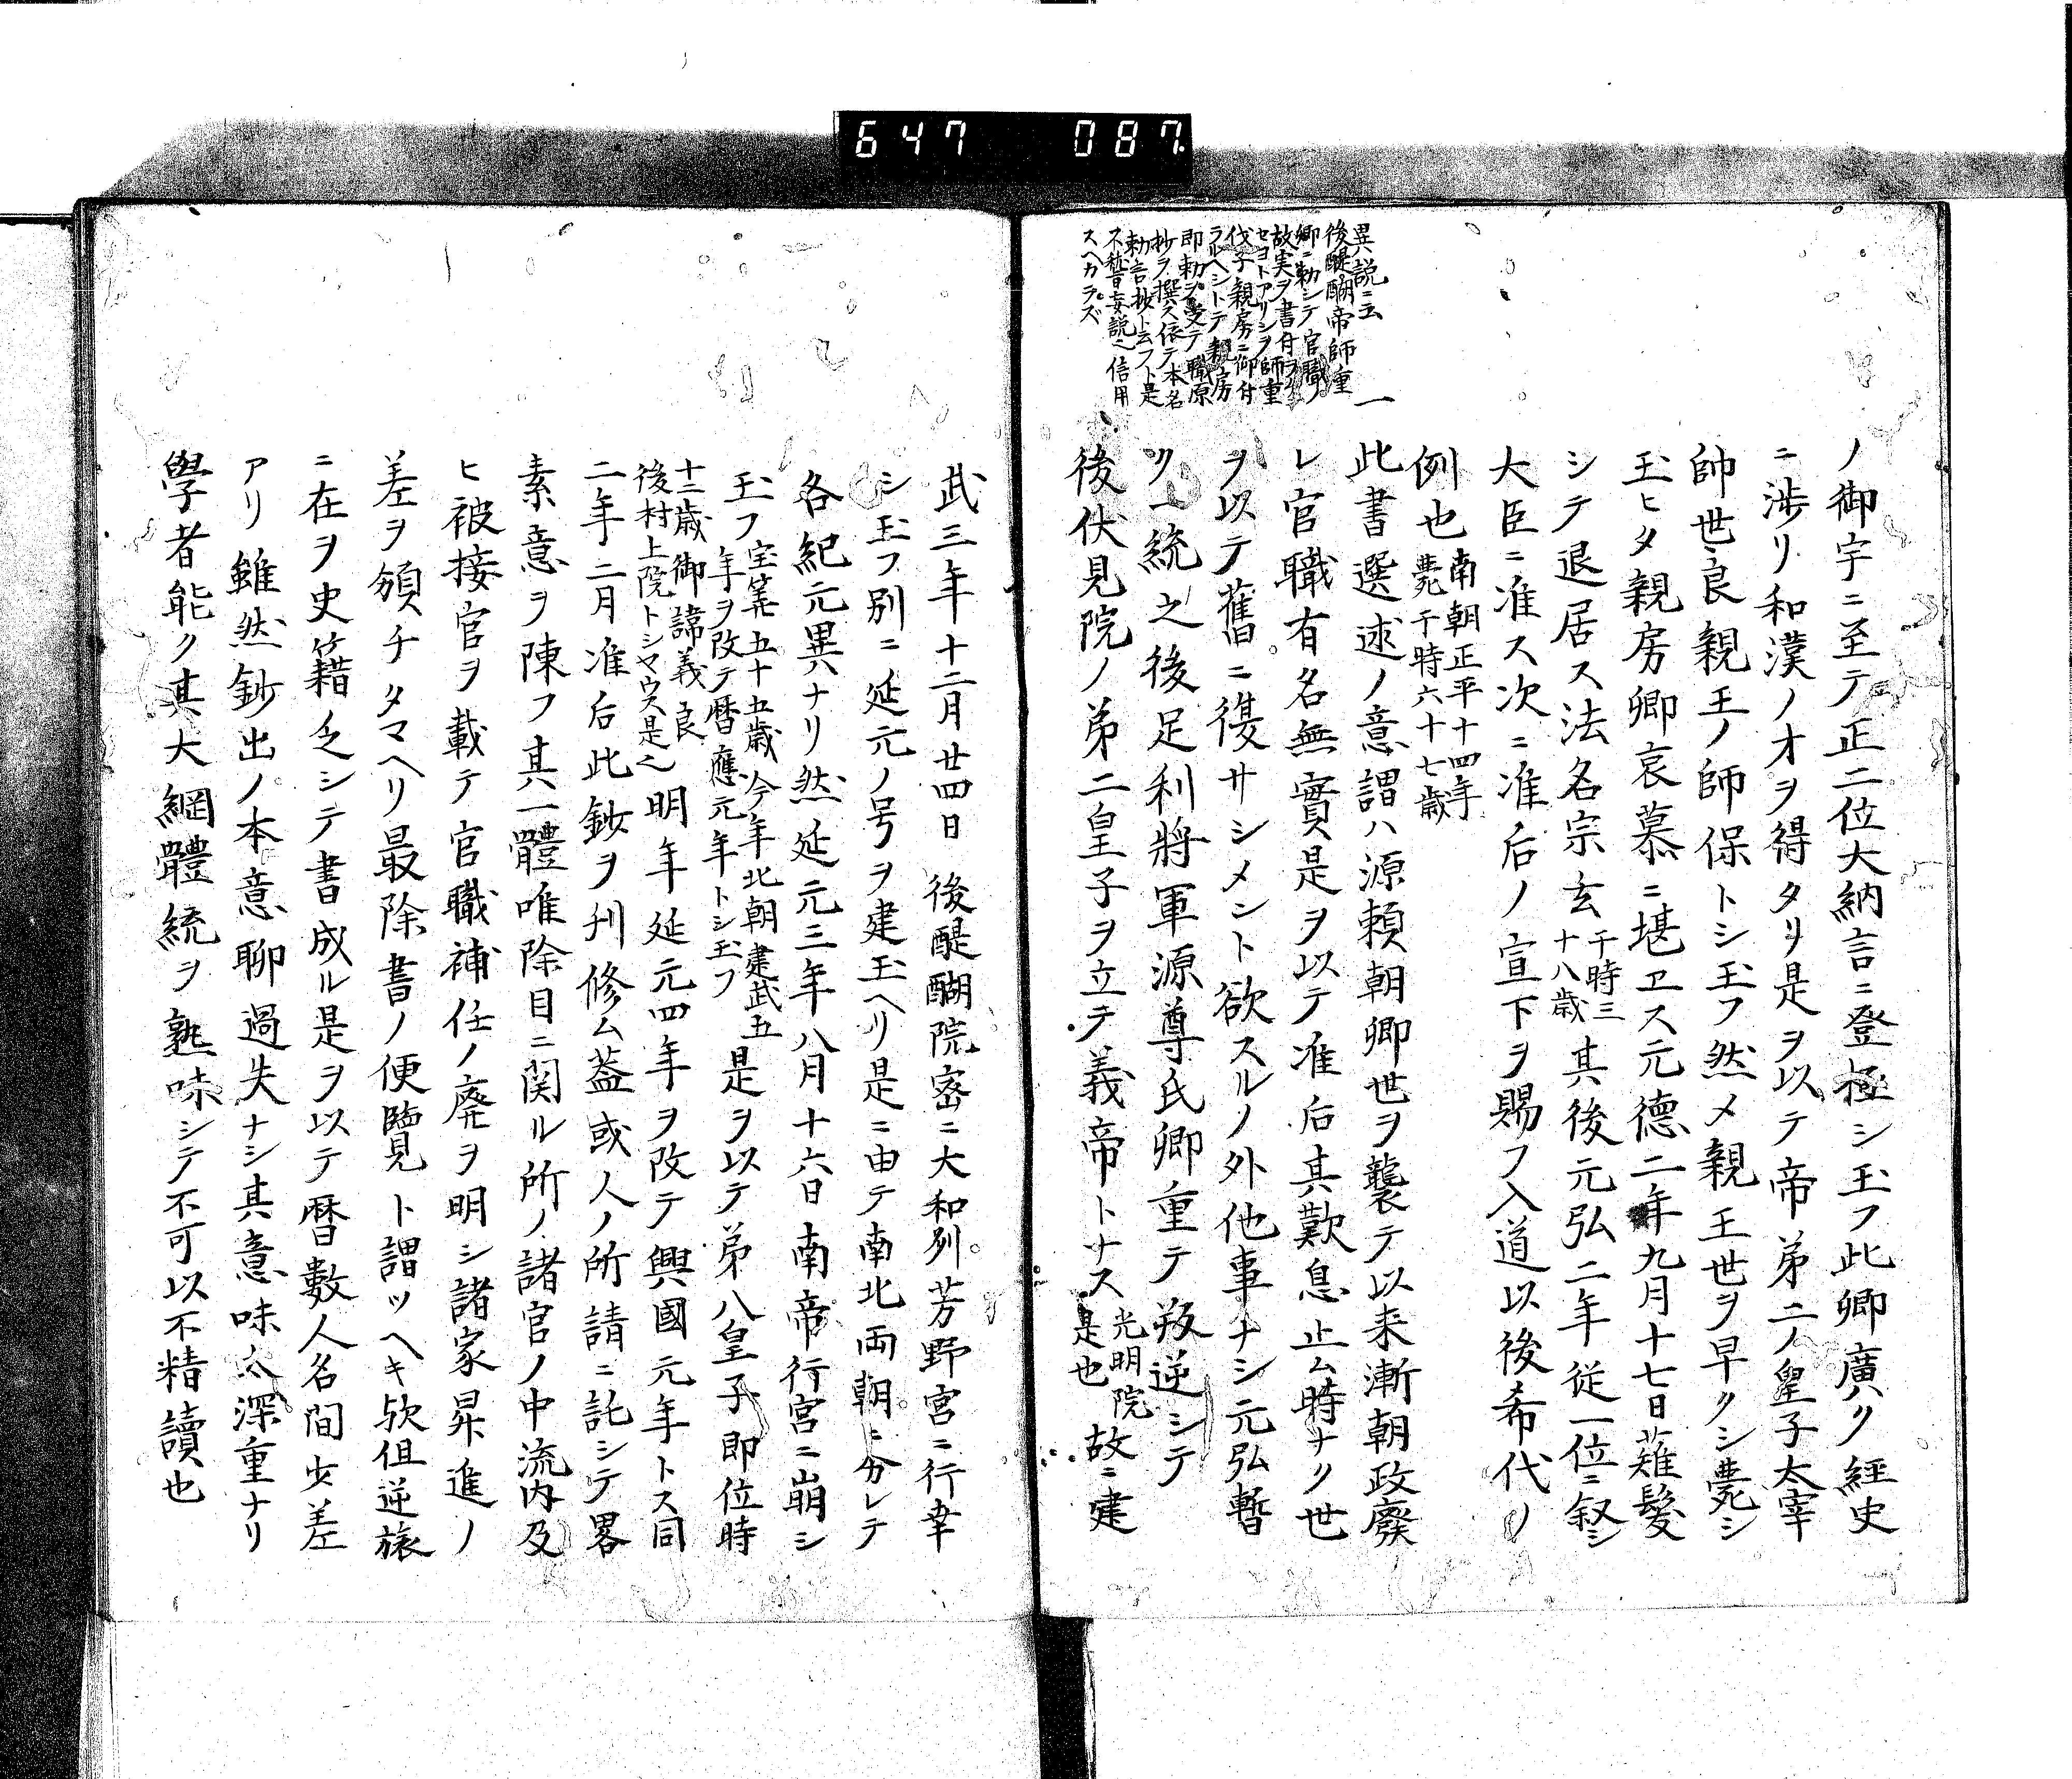 647 087
ノ御宇ニ至テ正二位大納言ニ登極シ玉フ此卿廣ク經史
ニ渉リ和漢ノ才ヲ得タリ是ヲ以テ帝第二ノ皇子太宰
帥世良親王ノ師保トシ玉フ然メ親王世ヲ早クシ薨シ
玉ヒタ親房卿哀慕ニ堪ヱス元徳二年九月十七日薙髪
シテ退居ス法名宗玄
于時三
十八歳
其後元弘二年従一位ニ叙シ
大臣ニ准ス次ニ准后ノ宣下ヲ賜フ入道以後希代ノ
例也
南朝正平十四年
薨于時六十七歳
異説ニ云
後醍醐帝師重
卿ニ勅シテ官職ノ
故実ヲ書付
セヨトアリシヲ師重
伐子親房ニ御付
ラルヘシトテ親房
即勅ヲ受テ職原
抄ヲ撰ス依テ本名
勅言抄ト云フト是
不稽妄説也信用
スヘカラズ
一
此書選述ノ意謂ハ源頼朝卿世ヲ襲テ以来漸朝政廢
レ官職有名無實是ヲ以テ准后其歎息止ム時ナク世
ヲ以テ舊ニ復サシメント欲スルノ外他事ナシ元弘暫
ク一統之後足利將軍源尊氏卿重テ叛逆シテ
後伏見院ノ第二皇子ヲ立テ義帝トナス
光明院
是也
故ニ建
武三年十二月廿四日後醍醐院密ニ大和州芳野宮ニ行幸
シ玉フ別ニ延元ノ号ヲ建玉ヘリ是ニ由テ南北両朝ニ分レテ
各紀元異ナリ然延元三年八月十六日南帝行宮ニ崩シ
玉フ
宝筭五十五歳今年北朝建武五
年ヲ改テ暦應元年トシ玉フ
是ヲ以テ第八皇子即位時
十二歳御諱義良
後村上院トシヤウス是也
明年延元四年ヲ改テ興國元年トス同
二年二月准后此鈔ヲ刋修ム蓋或人ノ所請ニ託シテ畧
素意ヲ陳フ其一體唯除目ニ関ル所ノ諸官ノ中流内及
ヒ被接官ヲ載テ官職補任ノ廃ヲ明シ諸家昇進ノ
差ヲ頒チタマヘリ最除書ノ便覽ト謂ツヘキ欤但逆旅
ニ在ヲ史籍乏シテ書成ル是ヲ以テ暦數人名間少差
アリ雖然鈔出ノ本意聊過失ナシ其意味太深重ナリ
學者能ク其大綱體統ヲ熟味シテ不可以不精讀也